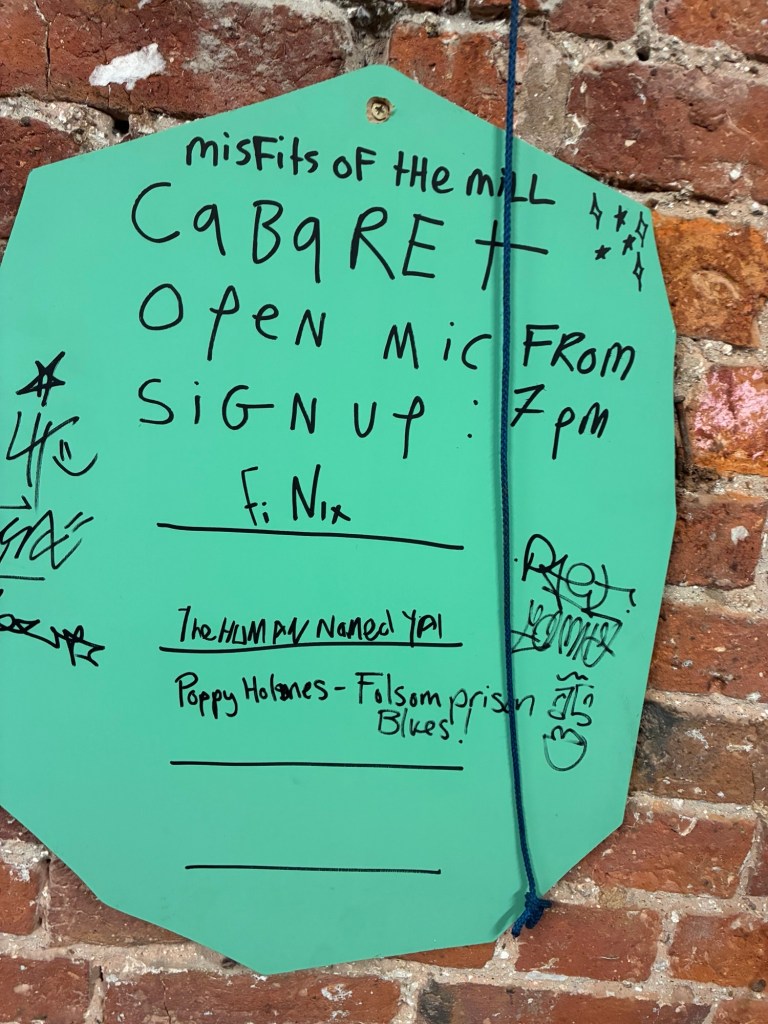 misFits oF tHe miLL
CaBaREt
OPeN Mic FROM
SiGN UP : 7pm
Fi Nix
The HUMAN Named YAI
Poppy Holmes - Folsom prison
Blues!